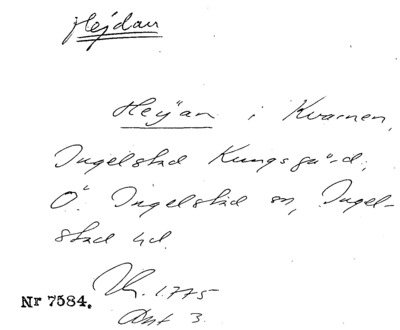 Hejdan
Heÿan i Kvarnen,
Ingelstad Kungsgård,
Ö. Ingelstad sn, Ingel-
stad hd.
1.775
Nr 7584.
3.